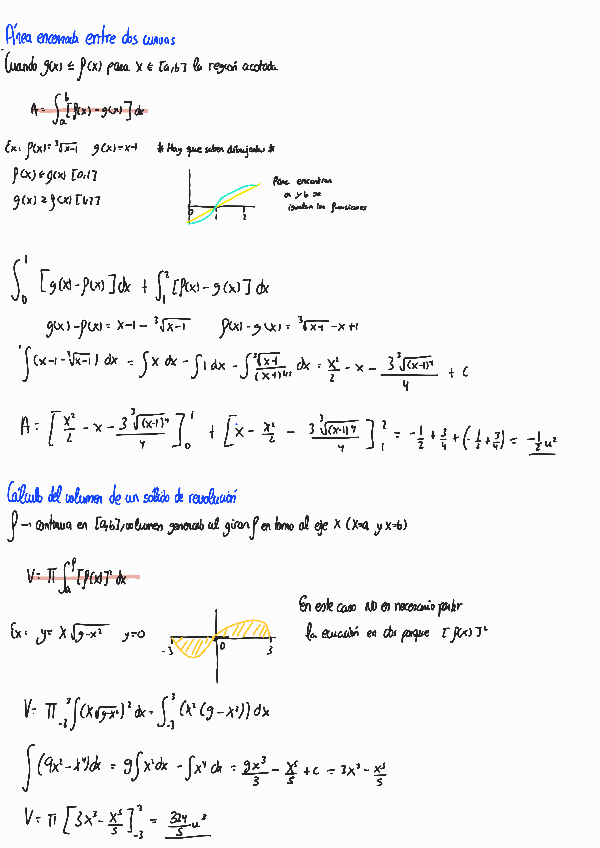 Área encerrada entre dos curvas
Cuando g(x) ≤ f(x) para x ∈ [a,b] la región acotada
A = ∫_a^b [f(x) - g(x)] dx
Ex: f(x) = ³√(x-1) g(x) = x-1 * Hay que saber dibujarlas *
f(x) ≤ g(x) [0,1]
g(x) ≥ f(x) [1,2]
Para encontrar
a y b se
igualan las funciones
0 1 2
∫_0^1 [g(x) - f(x)] dx + ∫_1^2 [f(x) - g(x)] dx
g(x) - f(x) = x-1 - ³√(x-1) f(x) - g(x) = ³√(x-1) - x+1
∫(x-1-³√(x-1)) dx = ∫x dx - ∫1 dx - ∫ ³√(x-1) dx = x²/2 - x - 3 ³√(x-1)⁴/4 + C
A = [x²/2 - x - 3 ³√(x-1)⁴/4]_0^1 + [x - x²/2 - 3 ³√(x-1)⁴/4]_1^2 = -1/2 + 3/4 + (-1/2 + 3/4) = -1/2 u²
Cálculo del volumen de un sólido de revolución
f → continua en [a,b], volumen generado al girar f en torno al eje X (x=a y x=b)
V = π ∫_a^b [f(x)]² dx
En este caso NO es necesario partir
Ex: y = x√(9-x²) y=0
la ecuación en dos porque [f(x)]²
-3 0 3
V = π _-3^3 ∫(x√(9-x²))² dx = ∫_-3^3 (x²(9-x²)) dx
∫(9x²-x⁴)dx = 9∫x²dx - ∫x⁴ dx = 9x³/3 - x⁵/5 + C = 3x³ - x⁵/5
V = π [3x³ - x⁵/5]_-3^3 = 324/5 u³